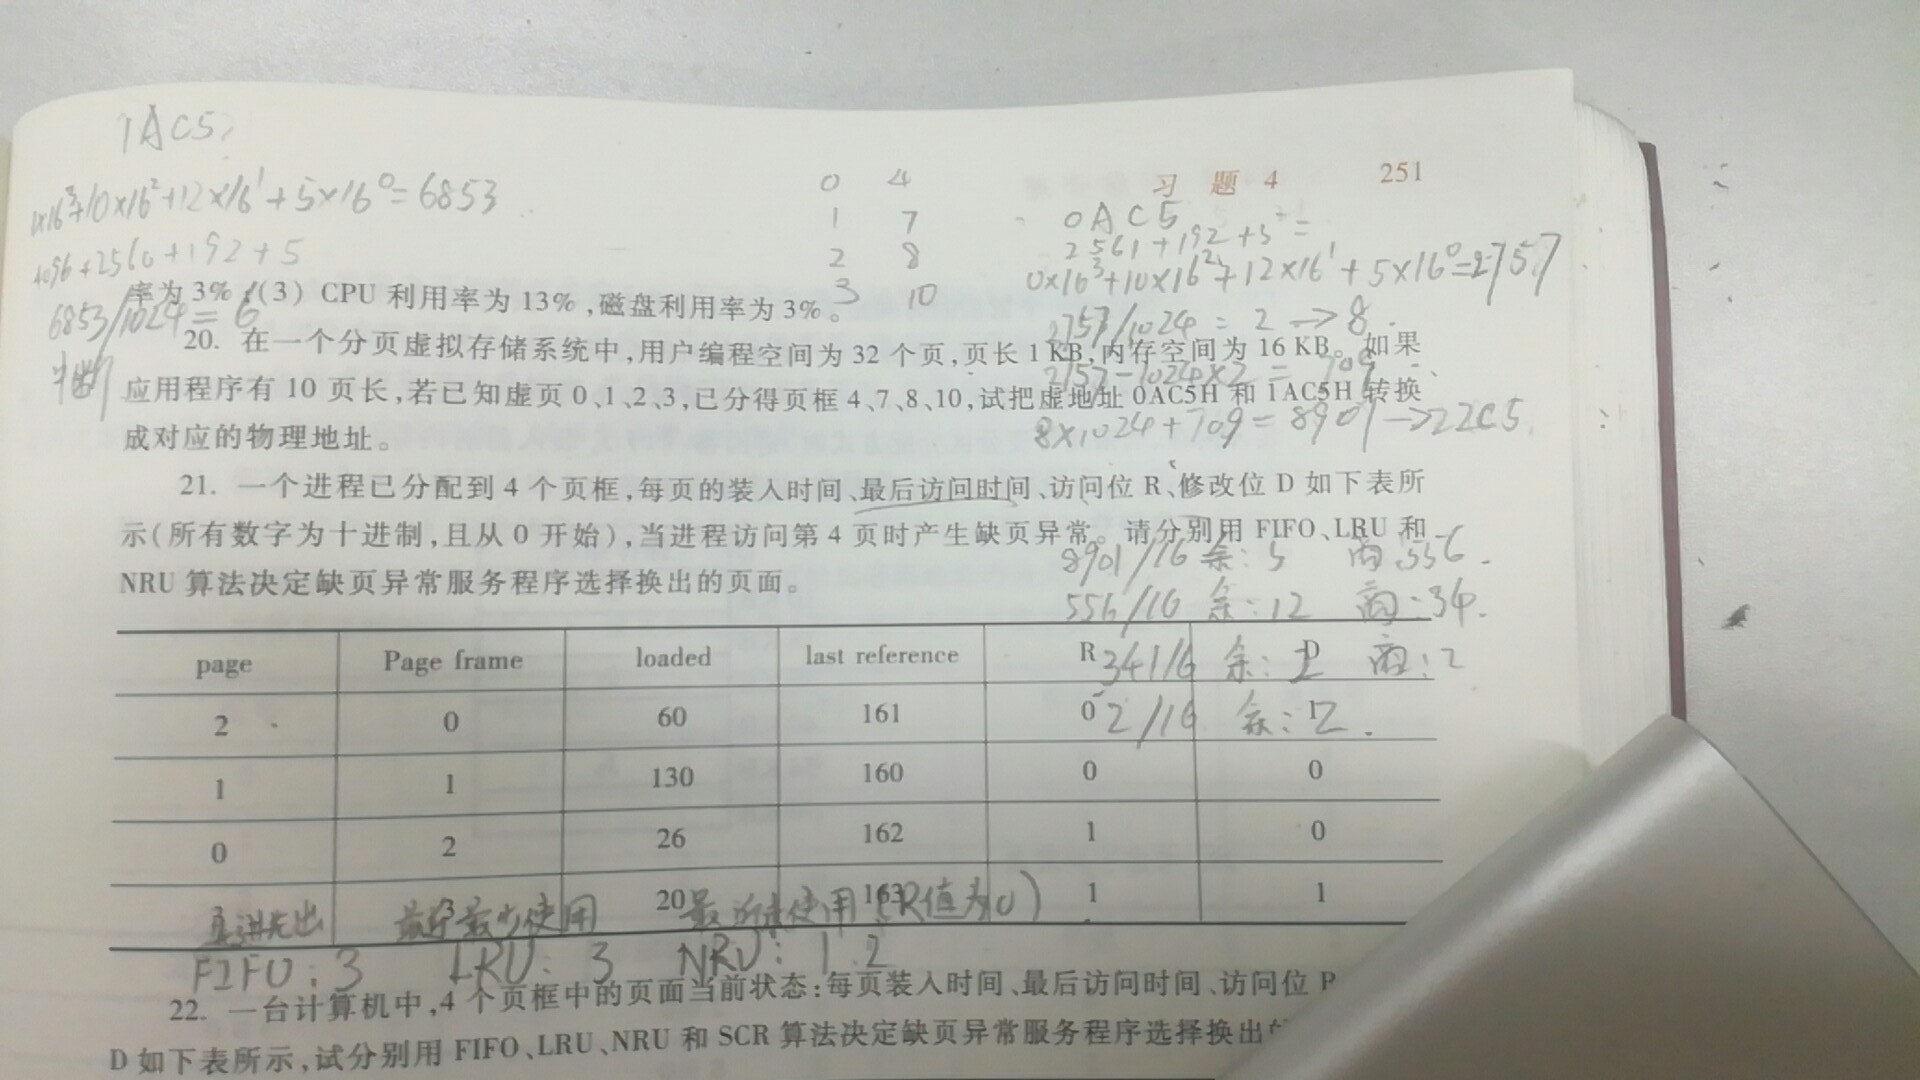 1AC5
1×16³+10×16²+12×16¹+5×16⁰=6853
4096+2560+192+5
6853/1024=6
判断
0 4
1 7
2 8
3 10
习 题 4 251
0AC5
2561+192+5=
0×16³+10×16²+12×16¹+5×16⁰=2757
2757/1024=2→8
2757-1024×2=709
8×1024+709=8901→22C5.
率为 3%;(3) CPU 利用率为 13%,磁盘利用率为 3%。
20. 在一个分页虚拟存储系统中,用户编程空间为 32 个页,页长 1 KB,内存空间为 16 KB。如果
应用程序有 10 页长,若已知虚页 0、1、2、3,已分得页框 4、7、8、10,试把虚地址 0AC5H 和 1AC5H 转换
成对应的物理地址。
21. 一个进程已分配到 4 个页框,每页的装入时间、最后访问时间、访问位 R、修改位 D 如下表所
示(所有数字为十进制,且从 0 开始),当进程访问第 4 页时产生缺页异常。请分别用 FIFO、LRU 和
NRU 算法决定缺页异常服务程序选择换出的页面。
8901/16 余:5 商:556.
556/16 余:12 商:34.
34/16 余:2 商:2
2/16 余:2.
page Page frame loaded last reference R D
2 0 60 161 0 1
1 1 130 160 0 0
0 2 26 162 1 0
3 3 20 163 1 1
先进先出 最近最少使用 最近未使用(R值为0)
FIFO:3 LRU:3 NRU:1.2
22. 一台计算机中,4 个页框中的页面当前状态:每页装入时间、最后访问时间、访问位 R
D 如下表所示,试分别用 FIFO、LRU、NRU 和 SCR 算法决定缺页异常服务程序选择换出